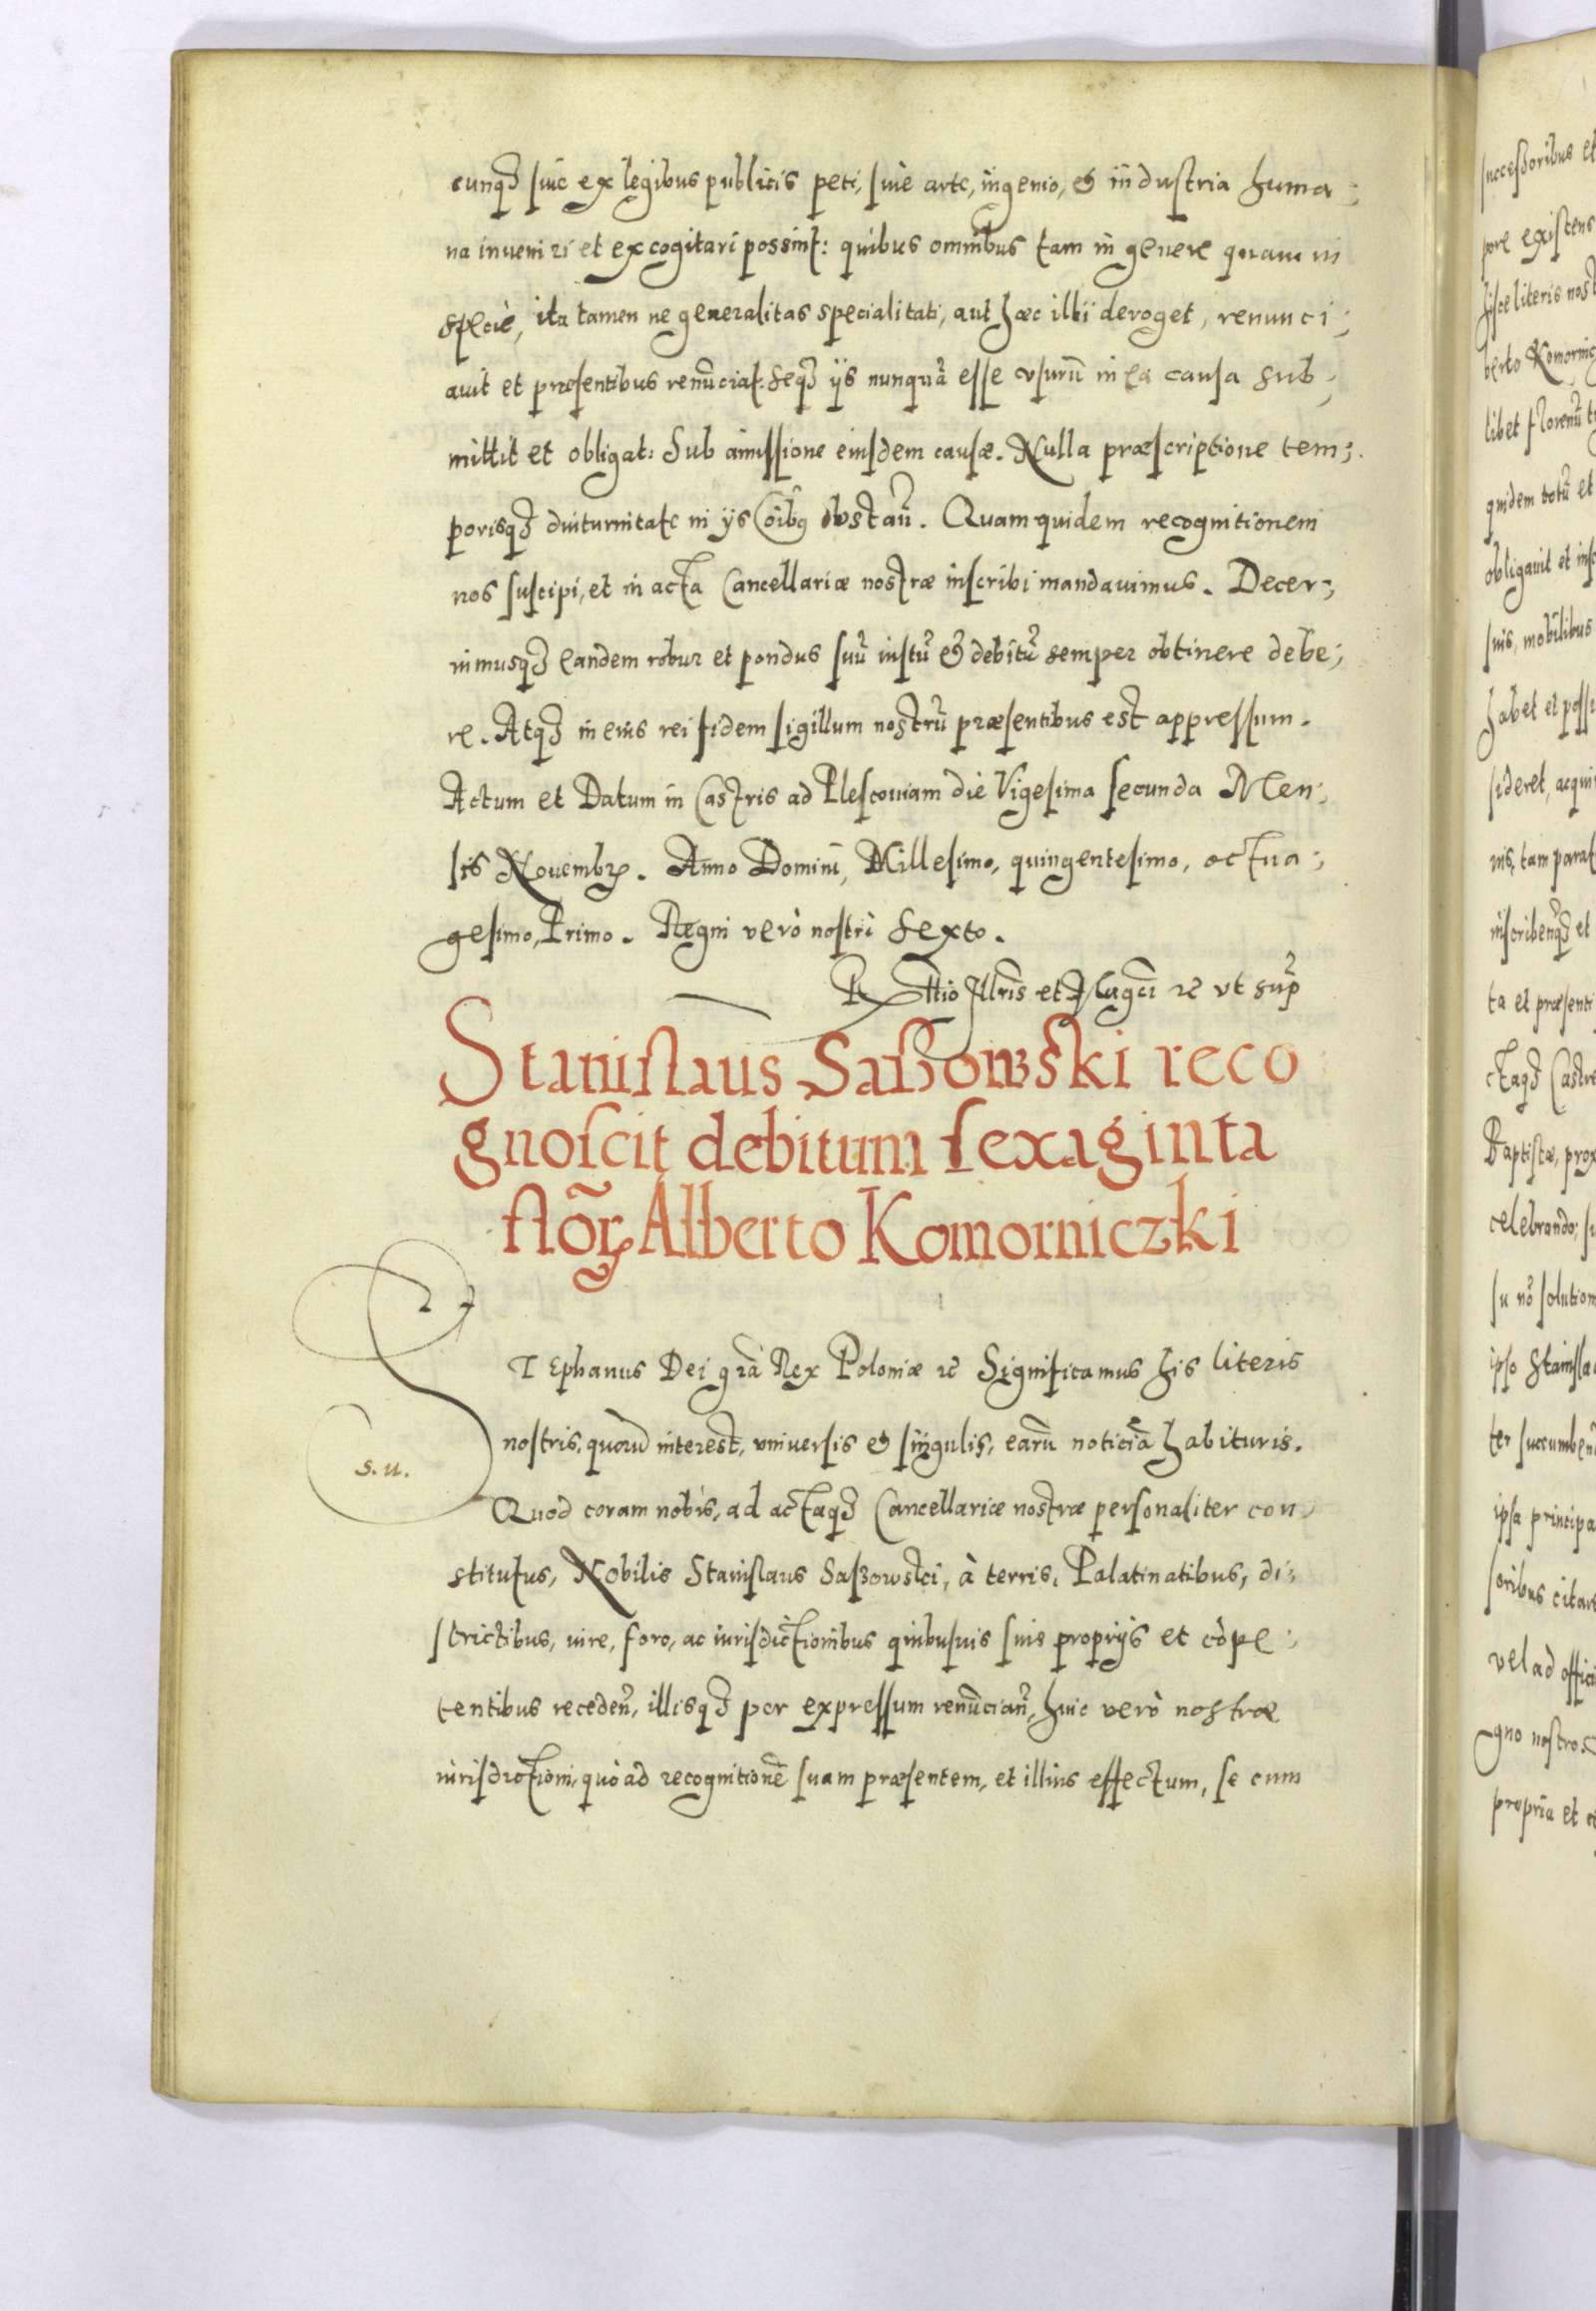 cunqꝫ siue ex legibus publicis peti, siue arte, ingenio, & industria huma-
na inueniri et excogitari possint: quibus omnibus tam in genere quam in
specie, ita tamen ne generalitas specialitati, aut hæc illi deroget, renunci-
auit et præsentibus renũciat. Seqꝫ ijs nunquã esse vsurũ in ea causa sub-
mittit et obligat: Sub amissione eiusdem causæ. Nulla præscriptione tem-
porisqꝫ diuturnitate in ijs oĩbq obstañ. Quam quidem recognitionem
nos suscipi, et in acta Cancellariæ nostræ inscribi mandauimus. Decer-
nimusqꝫ eandem robur et pondus suũ iustũ & debitũ semper obtinere debe-
re. Atqꝫ in eius rei fidem sigillum nostrũ præsentibus est appressum.
Actum et Datum in Castris ad Plescouiam die Vigesima secunda Men-
sis Nouembꝝ. Anno Domini, Millesimo, quingentesimo, octua-
gesimo, Primo. Regni verò nostri Sexto.
Rttio Illris et Magci ꝛc vt sup
Stanislaus Saßowski reco
gnoscit debitum sexaginta
floꝝ Alberto Komorniczki
STEphanus Dei grã Rex Poloniæ ꝛc Significamus his literis
nostris, quorũ interest, vniuersis & singulis, earũ noticiã habituris.
s. u.
Quod coram nobis, ad actaqꝫ Cancellariæ nostræ personaliter con-
stitutus, Nobilis Stanislaus Saßowski, à terris, Palatinatibus, di-
strictibus, iure, foro, ac iurisdictionibus quibusuis suis proprijs et cõpe-
tentibus recedeñ, illisqꝫ per expressum renũciañ, huic verò nostræ
iurisdictioni, quò ad recognitionẽ suam præsentem, et illius effectum, se cum
successoribus et
pore existens
hisce literis nost
berto Komornic
libet florenũ t
quidem totũ et
obligauit et ins
suis, mobilibus
habet et possi
sideret, acqui
nis, tam parat
inscribenqꝫ et
ta et præsenti
ctaqꝫ Castre
Baptistæ, prox
celebrando; si
su nõ solution
ipso Stanisla
ter succumben
ipsa principa
soribus citar
vel ad offici
gno nostro
propria et